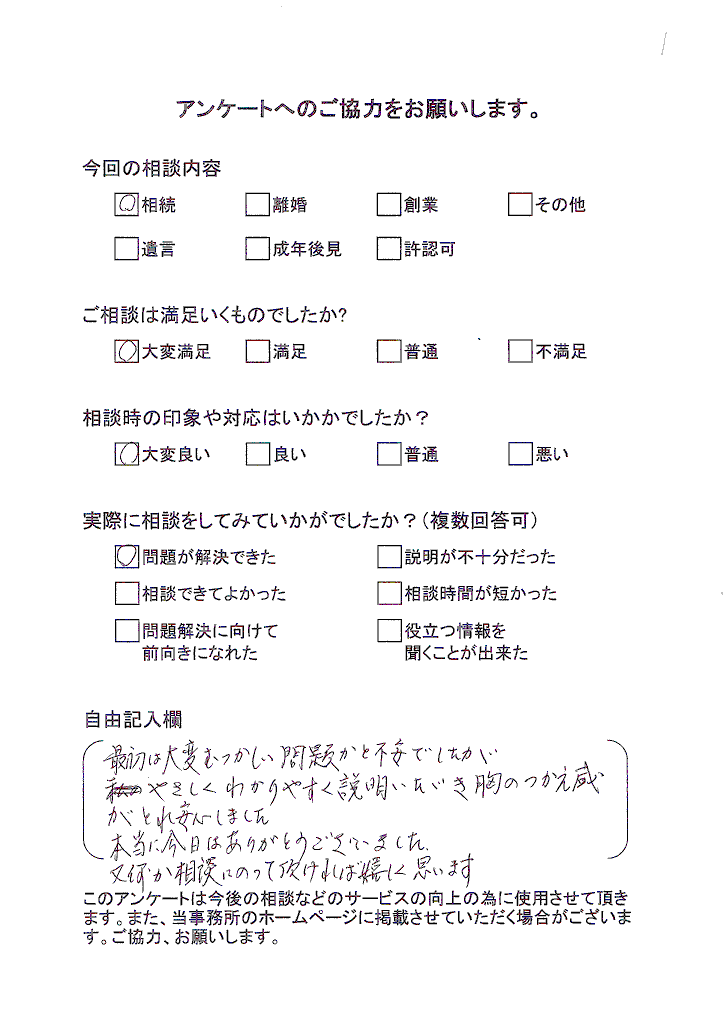 アンケートへのご協力をお願いします。
今回の相談内容
相続 離婚 創業 その他
遺言 成年後見 許認可
ご相談は満足いくものでしたか?
大変満足 満足 普通 不満足
相談時の印象や対応はいかかでしたか？
大変良い 良い 普通 悪い
実際に相談をしてみていかがでしたか？（複数回答可）
問題が解決できた 説明が不十分だった
相談できてよかった 相談時間が短かった
問題解決に向けて 役立つ情報を
前向きになれた 聞くことが出来た
自由記入欄
最初は大変むつかしい問題かと不安でしたが
やさしくわかりやすく説明いただき胸のつかえ感
がとれ安心しました
本当に今日はありがとうございました.
又何か相談にのって頂ければ嬉しく思います
このアンケートは今後の相談などのサービスの向上の為に使用させて頂き
ます。また、当事務所のホームページに掲載させていただく場合がございま
す。ご協力、お願いします。